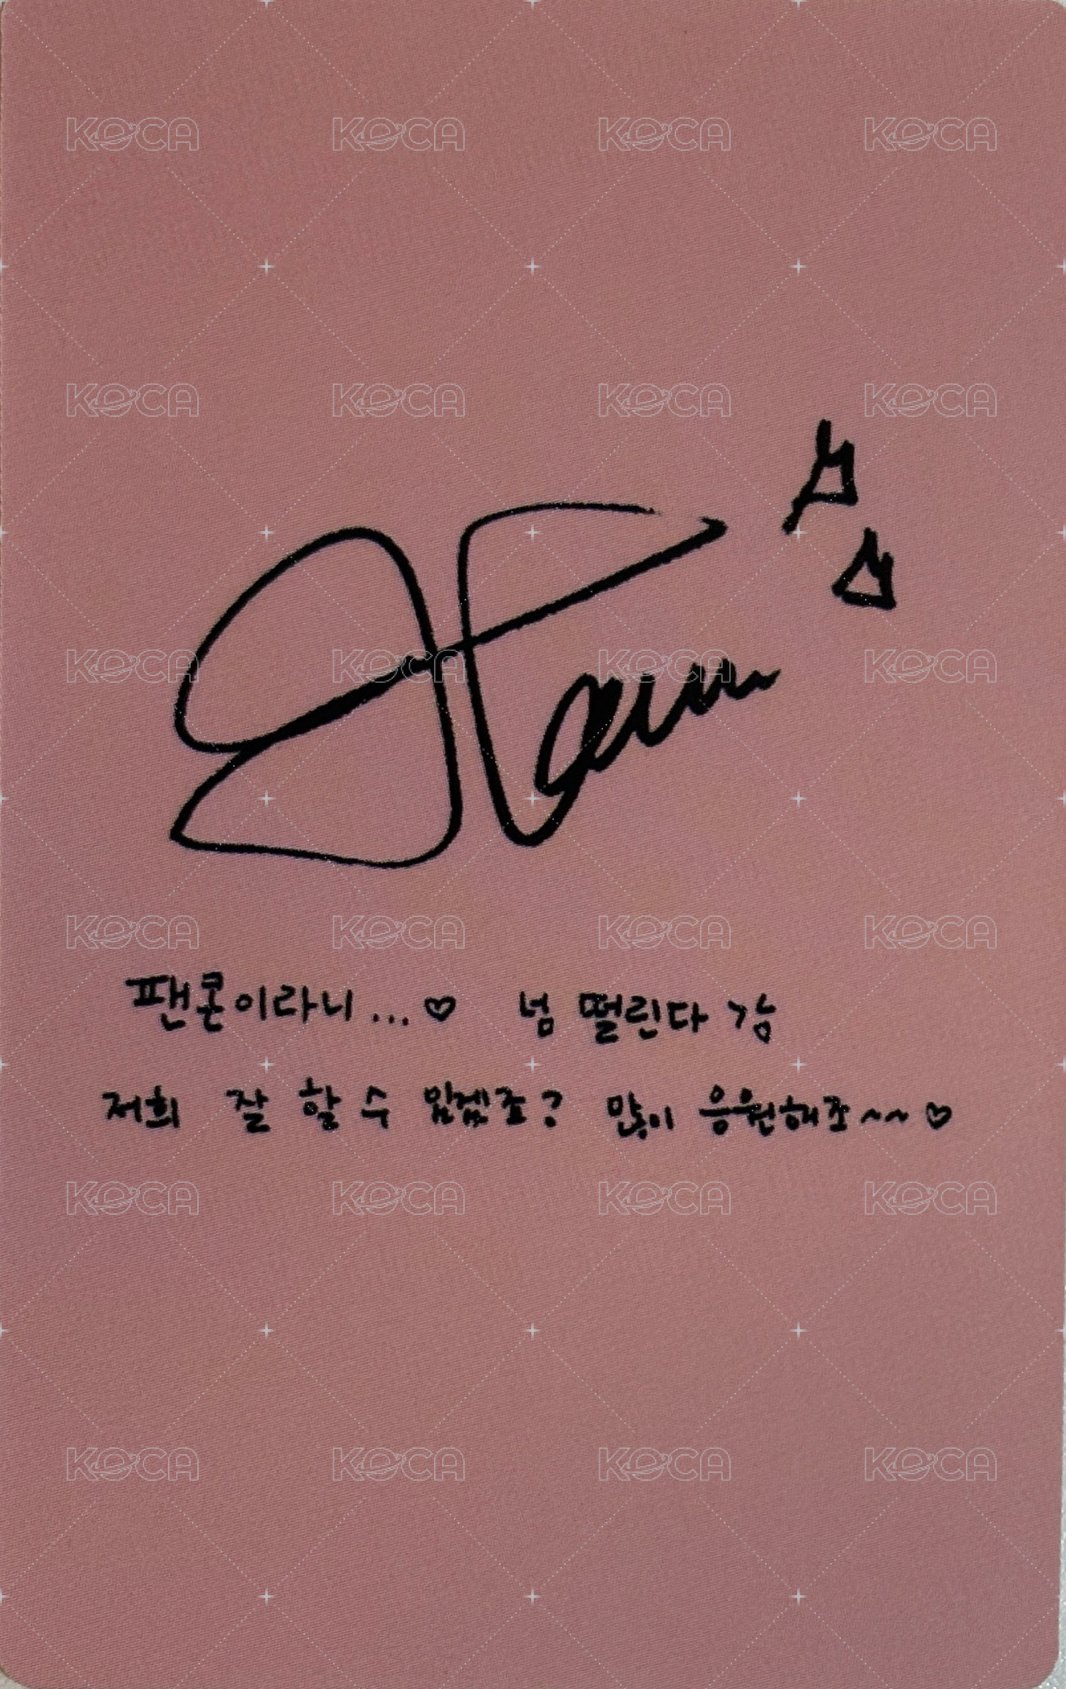 KOCA KOCA KOCA KOCA
KOCA KOCA KOCA KOCA
KOCA KOCA KOCA KOCA
KOCA KOCA KOCA KOCA
팬콘이라니...♡ 넘 떨린다 강
저희 잘 할 수 있겠죠? 많이 응원해죠~~♡
KOCA KOCA KOCA KOCA
KOCA KOCA KOCA KOCA